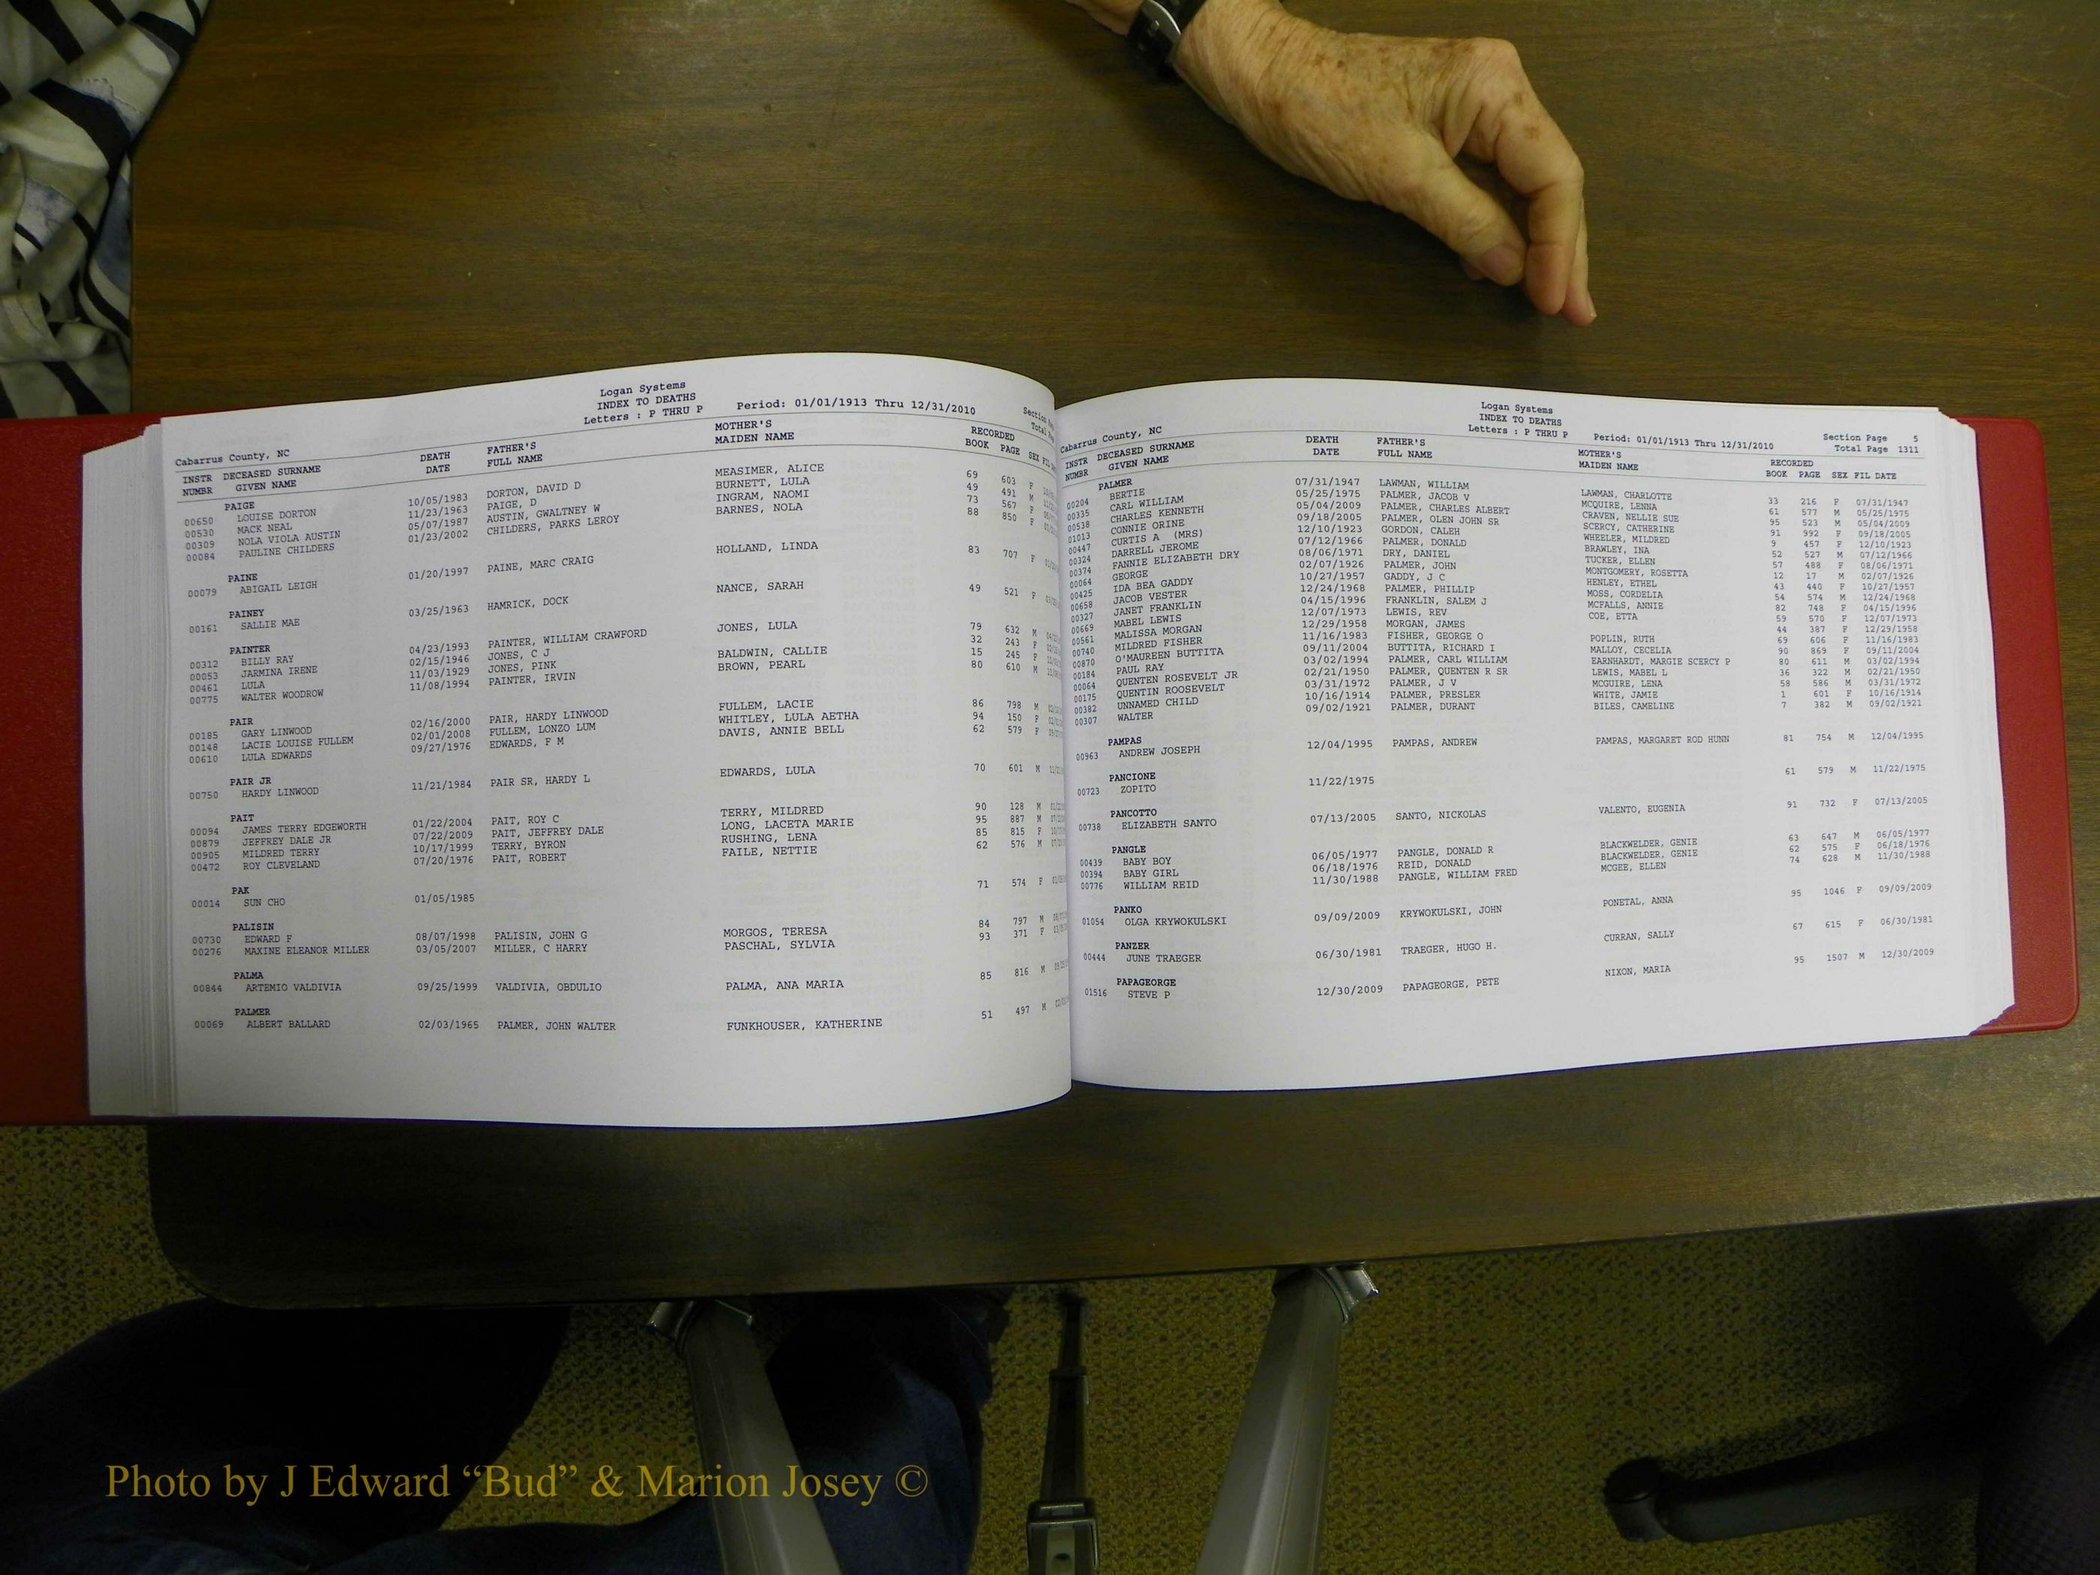 Logan Systems
INDEX TO DEATHS
Letters : P THRU P Period: 01/01/1913 Thru 12/31/2010
Cabarrus County, NC
INSTR DECEASED SURNAME DEATH FATHER'S MOTHER'S RECORDED
NUMBR GIVEN NAME DATE FULL NAME MAIDEN NAME BOOK PAGE SEX FIL
PAIGE
00650 LOUISE DORTON 10/05/1983 DORTON, DAVID D MEASIMER, ALICE 69 603 F
00530 MACK NEAL 11/23/1963 PAIGE, D BURNETT, LULA 49 491 M
00309 NOLA VIOLA AUSTIN 05/07/1987 AUSTIN, GWALTNEY W INGRAM, NAOMI 73 567 F
00084 PAULINE CHILDERS 01/23/2002 CHILDERS, PARKS LEROY BARNES, NOLA 88 850 F
PAINE
00079 ABIGAIL LEIGH 01/20/1997 PAINE, MARC CRAIG HOLLAND, LINDA 83 707 F
PAINEY
00161 SALLIE MAE 03/25/1963 HAMRICK, DOCK NANCE, SARAH 49 521 F
PAINTER
00312 BILLY RAY 04/23/1993 PAINTER, WILLIAM CRAWFORD JONES, LULA 79 632 M
00053 JARMINA IRENE 02/15/1946 JONES, C J 32 243 F
00461 LULA 11/03/1929 JONES, PINK BALDWIN, CALLIE 15 245 F
00775 WALTER WOODROW 11/08/1994 PAINTER, IRVIN BROWN, PEARL 80 610 M
PAIR
00185 GARY LINWOOD 02/16/2000 PAIR, HARDY LINWOOD FULLEM, LACIE 86 798 M
00148 LACIE LOUISE FULLEM 02/01/2008 FULLEM, LONZO LUM WHITLEY, LULA AETHA 94 150 F
00610 LULA EDWARDS 09/27/1976 EDWARDS, F M DAVIS, ANNIE BELL 62 579 F
PAIR JR
00750 HARDY LINWOOD 11/21/1984 PAIR SR, HARDY L EDWARDS, LULA 70 601 M
PAIT
00094 JAMES TERRY EDGEWORTH 01/22/2004 PAIT, ROY C TERRY, MILDRED 90 128 M
00879 JEFFREY DALE JR 07/22/2009 PAIT, JEFFREY DALE LONG, LACETA MARIE 95 887 M
00905 MILDRED TERRY 10/17/1999 TERRY, BYRON RUSHING, LENA 85 815 F
00472 ROY CLEVELAND 07/20/1976 PAIT, ROBERT FAILE, NETTIE 62 576 M
PAK
00014 SUN CHO 01/05/1985 71 574 F
PALISIN
00730 EDWARD F 08/07/1998 PALISIN, JOHN G MORGOS, TERESA 84 797 M
00276 MAXINE ELEANOR MILLER 03/05/2007 MILLER, C HARRY PASCHAL, SYLVIA 93 371 F
PALMA
00844 ARTEMIO VALDIVIA 09/25/1999 VALDIVIA, OBDULIO PALMA, ANA MARIA 85 816 M
PALMER
00069 ALBERT BALLARD 02/03/1965 PALMER, JOHN WALTER FUNKHOUSER, KATHERINE 51 497 M
Logan Systems
INDEX TO DEATHS
Letters : P THRU P Period: 01/01/1913 Thru 12/31/2010
Section Page 5
Total Page 1311
Cabarrus County, NC
INSTR DECEASED SURNAME DEATH FATHER'S MOTHER'S RECORDED
NUMBR GIVEN NAME DATE FULL NAME MAIDEN NAME BOOK PAGE SEX FIL DATE
PALMER
00204 BERTIE 07/31/1947 LAWMAN, WILLIAM LAWMAN, CHARLOTTE 33 216 F 07/31/1947
00335 CARL WILLIAM 05/25/1975 PALMER, JACOB V MCQUIRE, LENNA 61 577 M 05/25/1975
00538 CHARLES KENNETH 05/04/2009 PALMER, CHARLES ALBERT CRAVEN, NELLIE SUE 95 523 M 05/04/2009
01013 CONNIE ORINE 09/18/2005 PALMER, OLEN JOHN SR SCERCY, CATHERINE 91 992 F 09/18/2005
00447 CURTIS A (MRS) 12/10/1923 GORDON, CALEH WHEELER, MILDRED 9 457 F 12/10/1923
00324 DARRELL JEROME 07/12/1966 PALMER, DONALD BRAWLEY, INA 52 527 M 07/12/1966
00374 FANNIE ELIZABETH DRY 08/06/1971 DRY, DANIEL TUCKER, ELLEN 57 488 F 08/06/1971
00064 GEORGE 02/07/1926 PALMER, JOHN MONTGOMERY, ROSETTA 12 17 M 02/07/1926
00425 IDA BEA GADDY 10/27/1957 GADDY, J C HENLEY, ETHEL 43 440 F 10/27/1957
00658 JACOB VESTER 12/24/1968 PALMER, PHILLIP MOSS, CORDELIA 54 574 M 12/24/1968
00327 JANET FRANKLIN 04/15/1996 FRANKLIN, SALEM J MCFALLS, ANNIE 82 748 F 04/15/1996
00669 MABEL LEWIS 12/07/1973 LEWIS, REV COE, ETTA 59 570 F 12/07/1973
00561 MALISSA MORGAN 12/29/1958 MORGAN, JAMES 44 387 F 12/29/1958
00740 MILDRED FISHER 11/16/1983 FISHER, GEORGE O POPLIN, RUTH 69 606 F 11/16/1983
00870 O'MAUREEN BUTTITA 09/11/2004 BUTTITA, RICHARD I MALLOY, CECELIA 90 869 F 09/11/2004
00184 PAUL RAY 03/02/1994 PALMER, CARL WILLIAM EARNHARDT, MARGIE SCERCY P 80 611 M 03/02/1994
00064 QUENTEN ROSEVELT JR 02/21/1950 PALMER, QUENTEN R SR LEWIS, MABEL L 36 322 M 02/21/1950
00175 QUENTIN ROOSEVELT 03/31/1972 PALMER, J V MCGUIRE, LENA 58 586 M 03/31/1972
00382 UNNAMED CHILD 10/16/1914 PALMER, PRESLER WHITE, JAMIE 1 601 F 10/16/1914
00307 WALTER 09/02/1921 PALMER, DURANT BILES, CAMELINE 7 382 M 09/02/1921
PAMPAS
00963 ANDREW JOSEPH 12/04/1995 PAMPAS, ANDREW PAMPAS, MARGARET ROD HUNN 81 754 M 12/04/1995
PANCIONE
00723 ZOPITO 11/22/1975 61 579 M 11/22/1975
PANCOTTO
00738 ELIZABETH SANTO 07/13/2005 SANTO, NICKOLAS VALENTO, EUGENIA 91 732 F 07/13/2005
PANGLE
00439 BABY BOY 06/05/1977 PANGLE, DONALD R BLACKWELDER, GENIE 63 647 M 06/05/1977
00394 BABY GIRL 06/18/1976 REID, DONALD BLACKWELDER, GENIE 62 575 F 06/18/1976
00776 WILLIAM REID 11/30/1988 PANGLE, WILLIAM FRED MCGEE, ELLEN 74 628 M 11/30/1988
PANKO
01054 OLGA KRYWOKULSKI 09/09/2009 KRYWOKULSKI, JOHN PONETAL, ANNA 95 1046 F 09/09/2009
PANZER
00444 JUNE TRAEGER 06/30/1981 TRAEGER, HUGO H. CURRAN, SALLY 67 615 F 06/30/1981
PAPAGEORGE
01516 STEVE P 12/30/2009 PAPAGEORGE, PETE NIXON, MARIA 95 1507 M 12/30/2009
Photo by J Edward “Bud” & Marion Josey ©